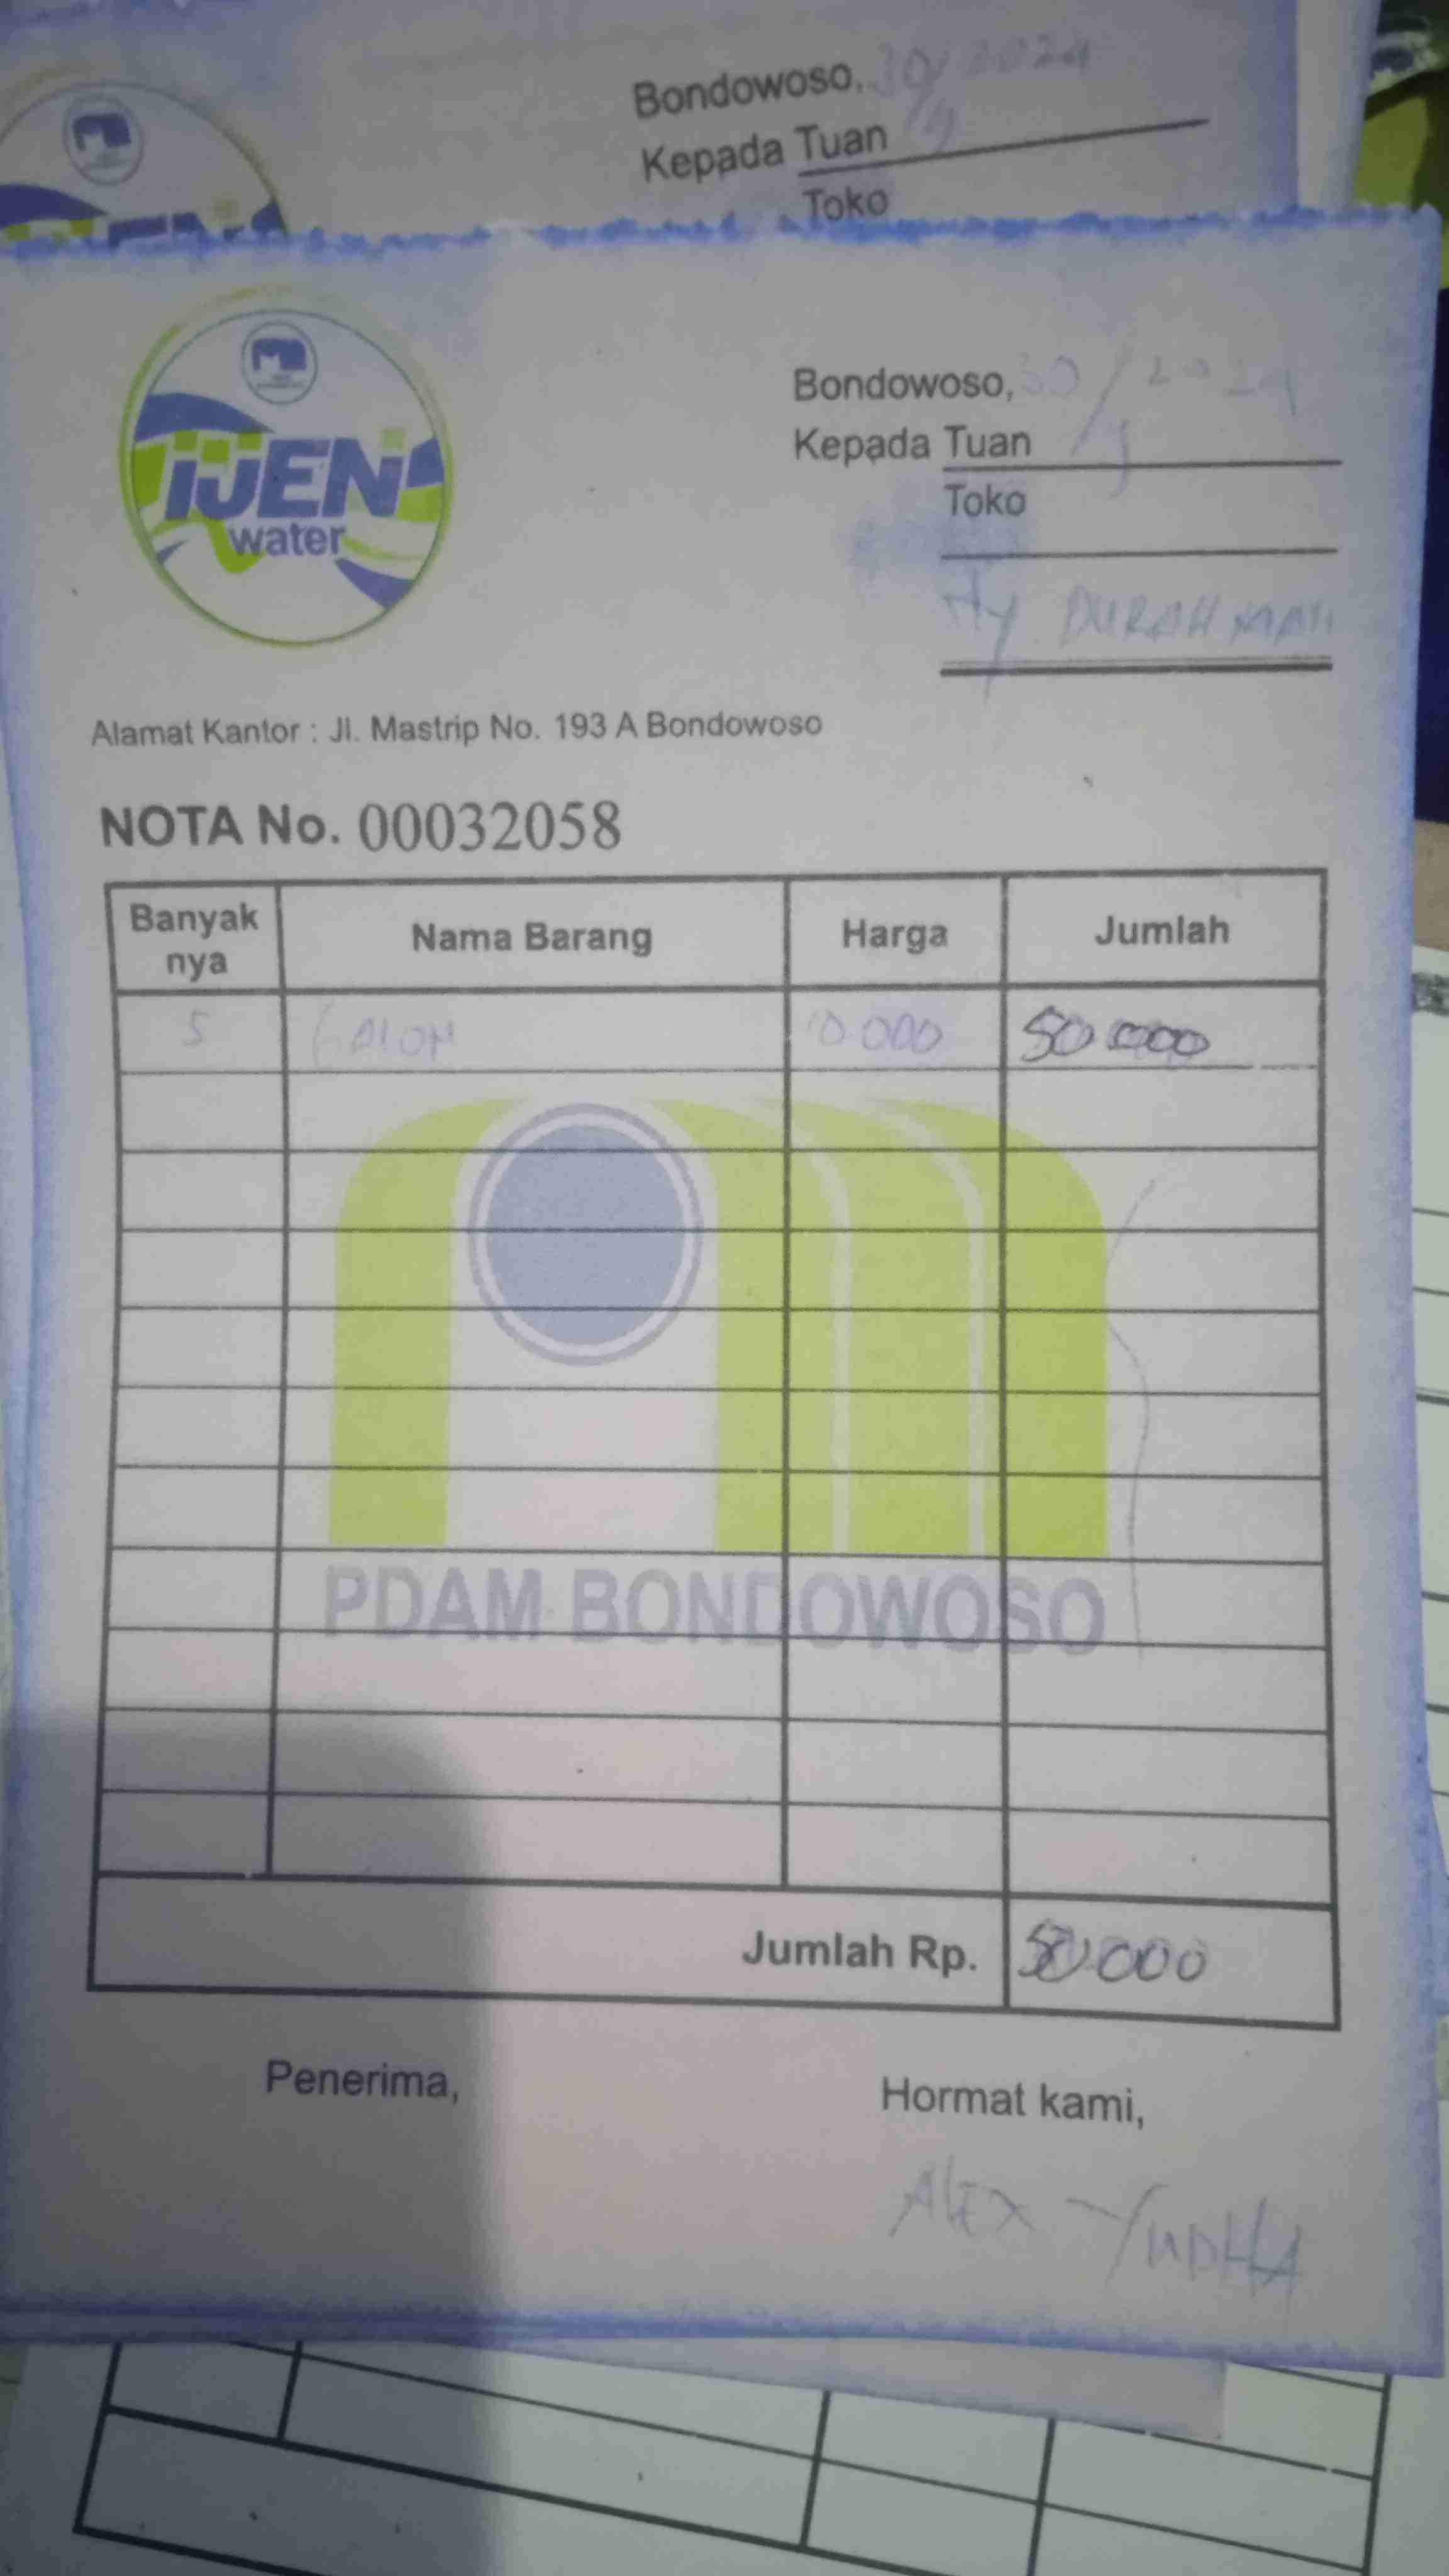 Bondowoso, 30/9 2024
Kepada Tuan
Toko
IJEN
water
Bondowoso, 30/9 2024
Kepada Tuan
Toko
DURAHMAN
Alamat Kantor : Jl. Mastrip No. 193 A Bondowoso
NOTA No. 00032058
Banyak nya Nama Barang Harga Jumlah
5 GALON 10.000 50.000
PDAM BONDOWOSO
Jumlah Rp. 50.000
Penerima, Hormat kami,
ALEX YUDHA